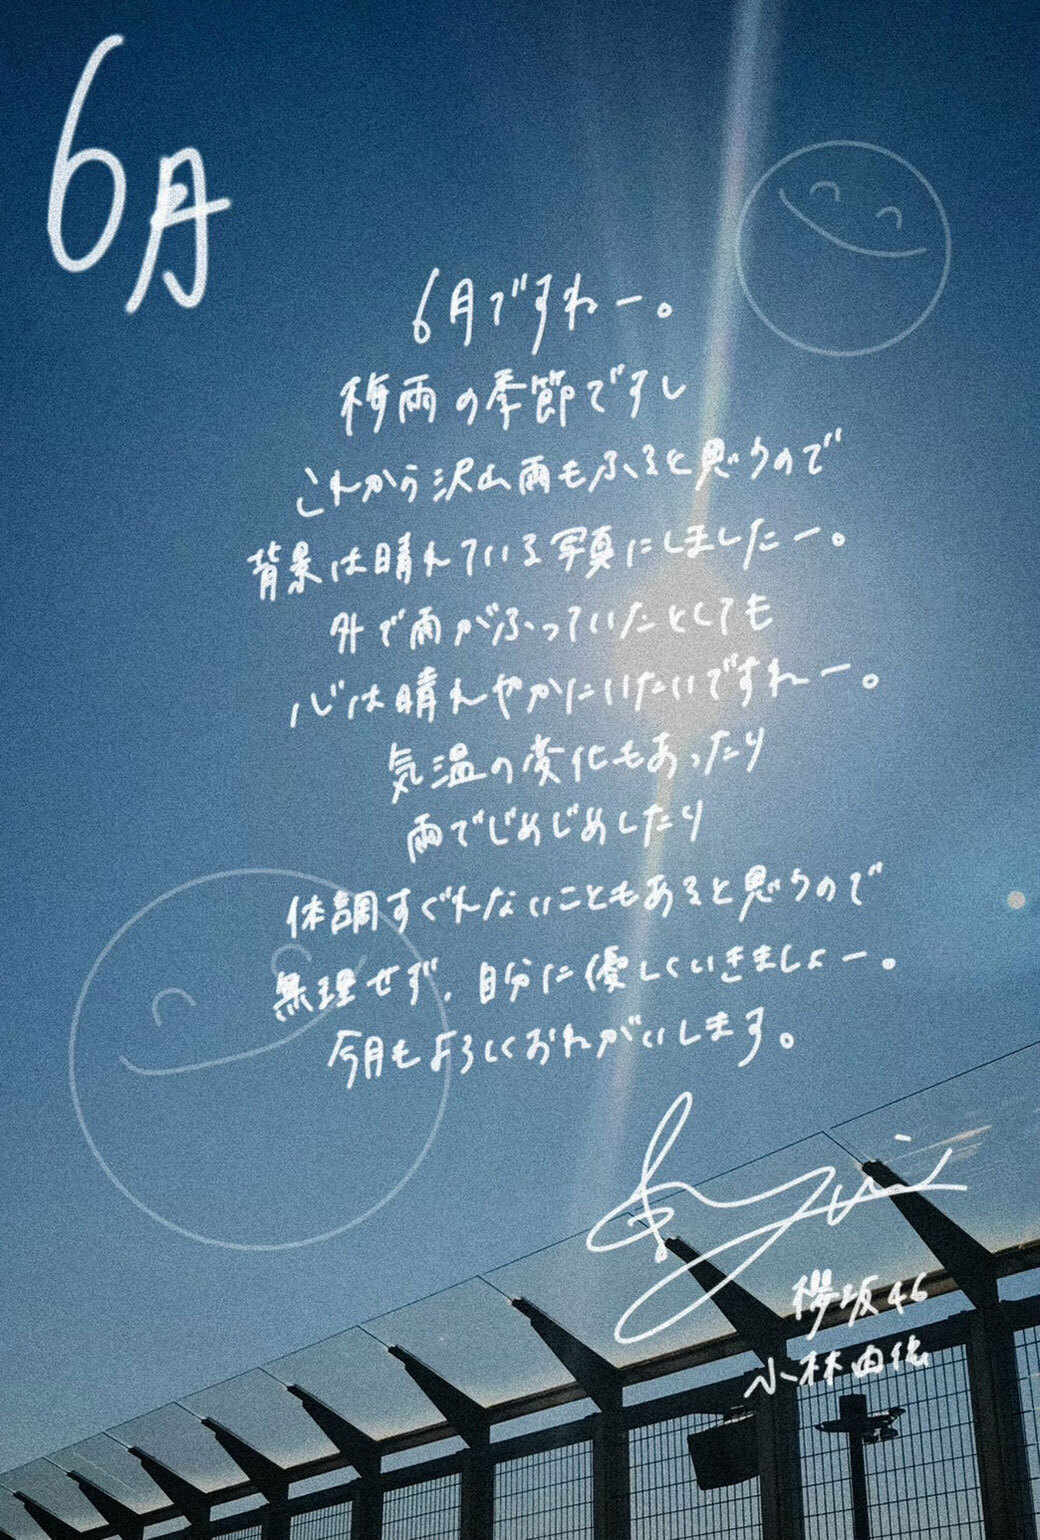 6月
6月ですねー。
梅雨の季節ですし
これから沢山雨もふると思うので
背景は晴れている写真にしましたー。
外で雨がふっていたとしても
心は晴れやかにいたいですねー。
気温の変化もあったり
雨でじめじめしたり
体調すぐれないこともあると思うので
無理せず、自分に優しくいきましょー。
今月もよろしくおねがいします。
Yui
櫻坂46
小林由依